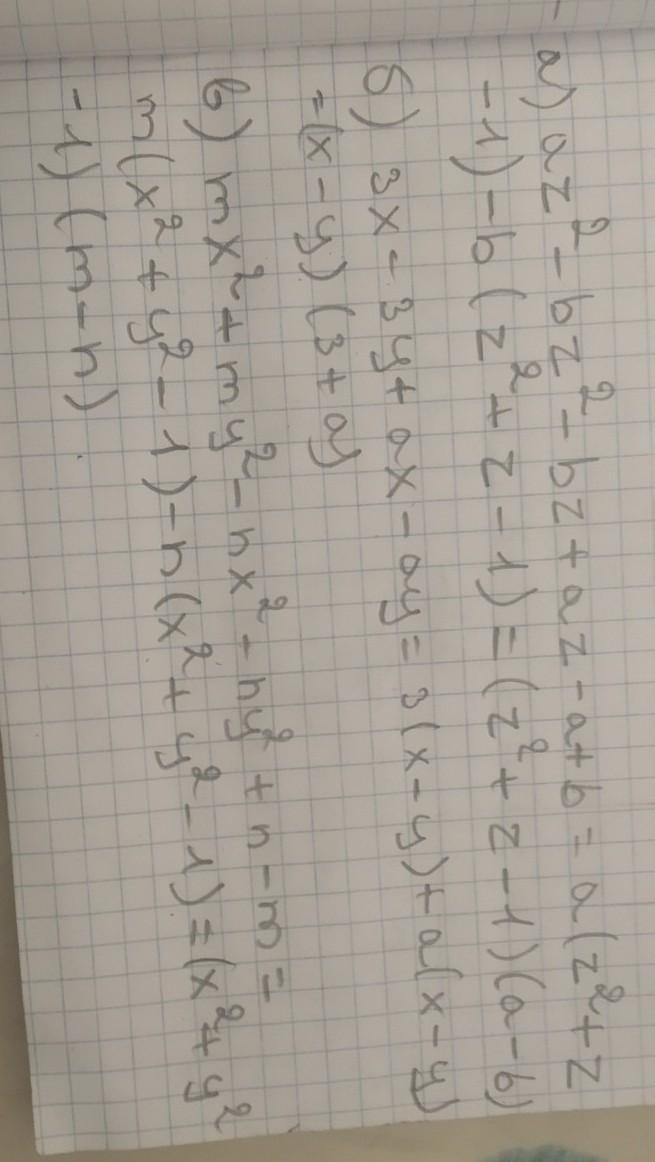 а) az² - bz² - bz + az - a + b = a(z² + z
- 1) - b(z² + z - 1) = (z² + z - 1)(a - b)
б) 3x - 3y + ax - ay = 3(x - y) + a(x - y)
= (x - y)(3 + a)
в) mx² + my² - nx² - ny² + n - m =
m(x² + y² - 1) - n(x² + y² - 1) = (x² + y²
- 1)(m - n)